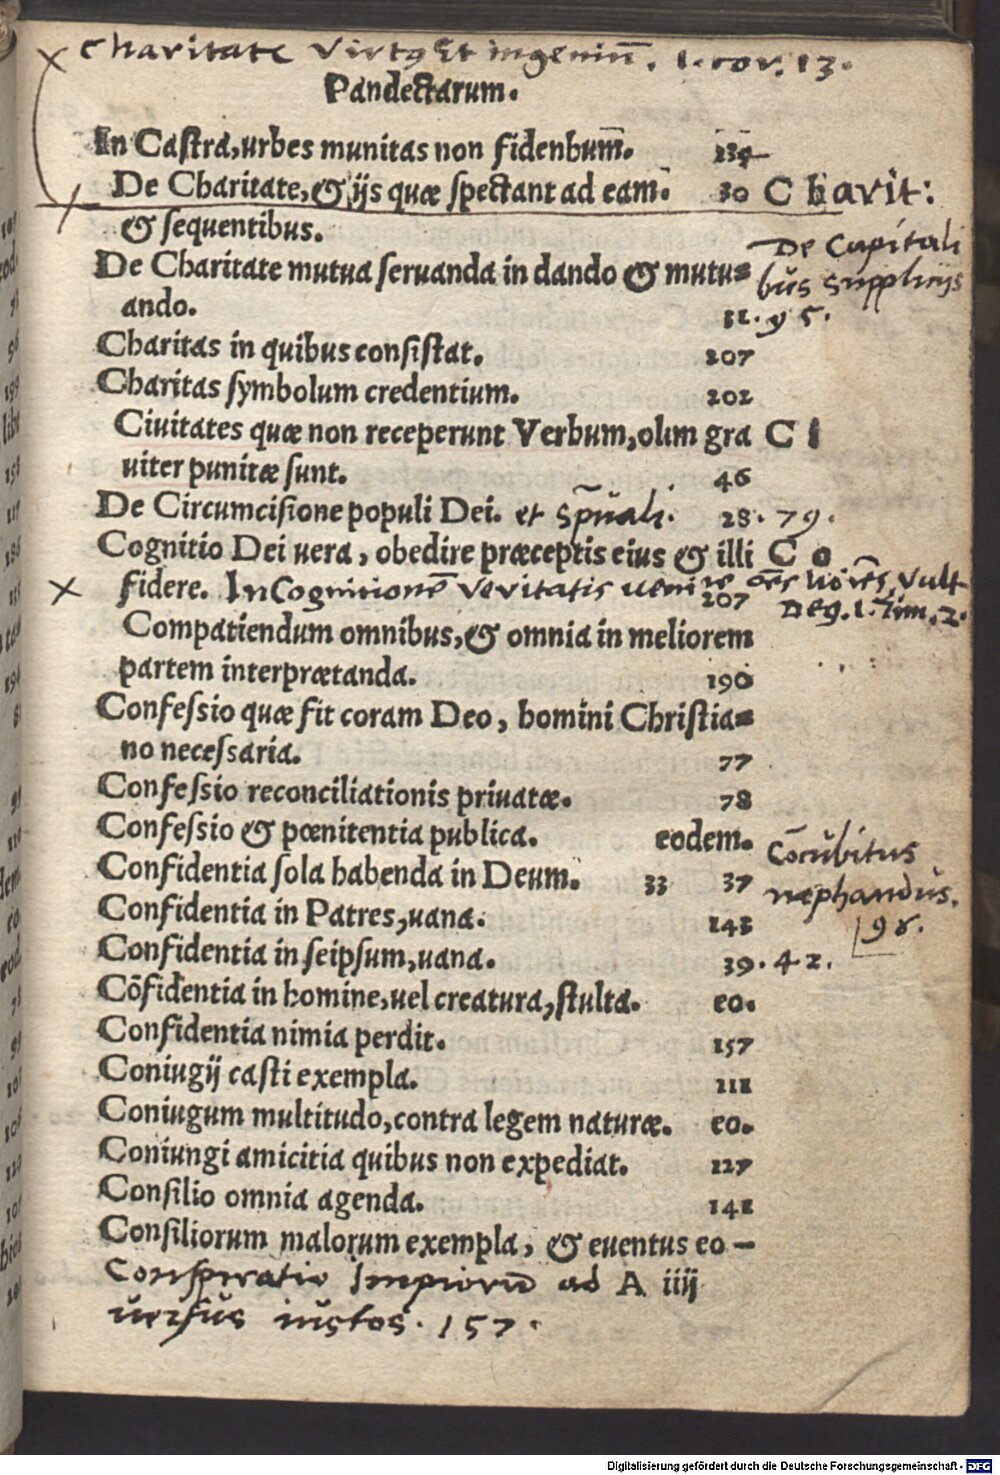 Charitate Virtus Et ingeniū. 1. cor. 13.
Pandectarum.
In Castra, urbes munitas non fidendum. 134
De Charitate, & ijs quæ spectant ad eam. 30 Charit:
& sequentibus.
De Capitali
bus supplicijs
95.
De Charitate mutua seruanda in dando & mutu=
ando. 31.
Charitas in quibus consistat. 207
Charitas symbolum credentium. 202
Ciuitates quæ non receperunt Verbum, olim gra C I
uiter punitæ sunt. 46
De Circumcisione populi Dei. et sp̄uali. 28. 79.
Cognitio Dei uera, obedire præceptis eius & illi C o
fidere. 207
In Cognitionē veritatis uenire oēs hoīes vult
Deg. 1. Tim. 2.
Compatiendum omnibus, & omnia in meliorem
partem interprætanda. 190
Confessio quæ fit coram Deo, homini Christia=
no necessaria. 77
Confessio reconciliationis priuatæ. 78
Confessio & pœnitentia publica. eodem.
Cōcubitus
nephandus.
98.
Confidentia sola habenda in Deum. 33 37
Confidentia in Patres, uana. 143
Confidentia in seipsum, uana. 39. 42.
Cōfidentia in homine, uel creatura, stulta. eo.
Confidentia nimia perdit. 157
Coniugij casti exempla. 111
Coniugum multitudo, contra legem naturæ. eo.
Coniungi amicitia quibus non expediat. 127
Consilio omnia agenda. 141
Consiliorum malorum exempla, & euentus eo –
A iiij
Conspiratio Impiorū ad
uersus iustos. 157.
Digitalisierung gefördert durch die Deutsche Forschungsgemeinschaft - DFG